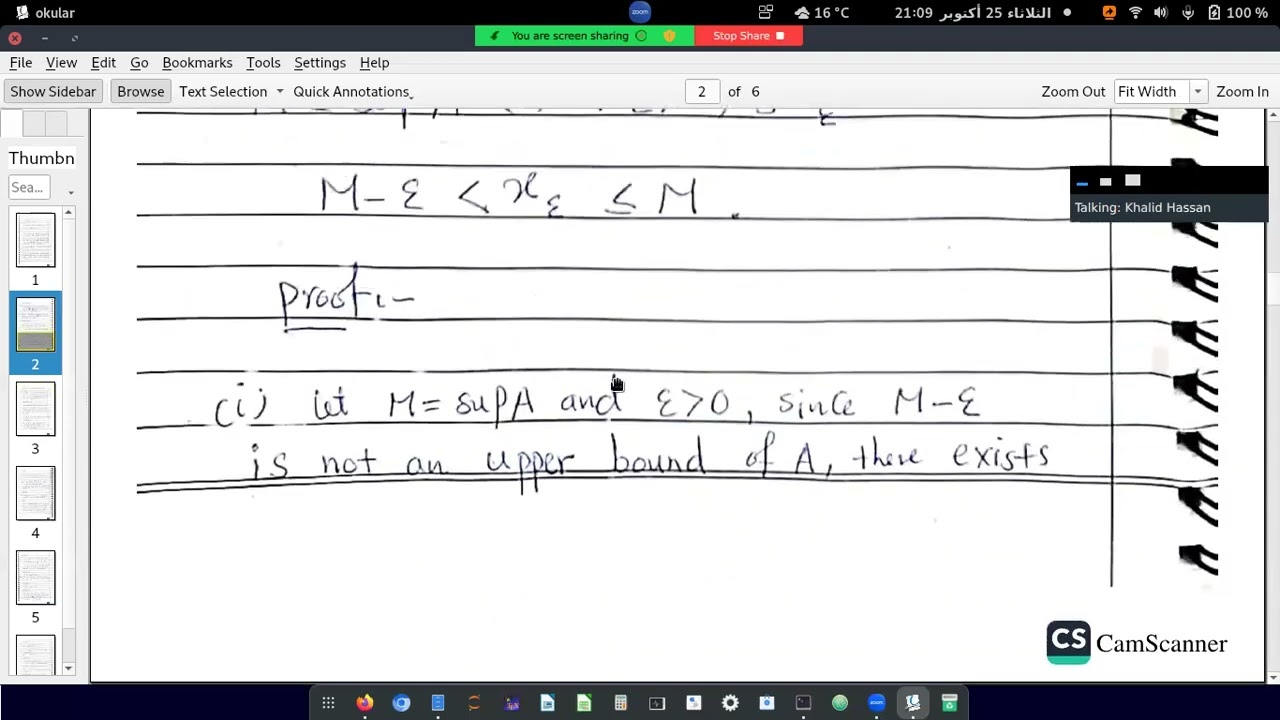 okular
zoom
16 °C
الثلاثاء 25 أكتوبر 21:09
100 %
You are screen sharing
Stop Share
File View Edit Go Bookmarks Tools Settings Help
Show Sidebar Browse Text Selection Quick Annotations 2 of 6 Zoom Out Fit Width Zoom In
Thumbn
Sea...
1
2
3
4
5
M - ε < x_ε ≤ M .
Talking: Khalid Hassan
Proof:-
(i) let M = sup A and ε > 0, since M - ε
is not an upper bound of A, there exists
CS CamScanner